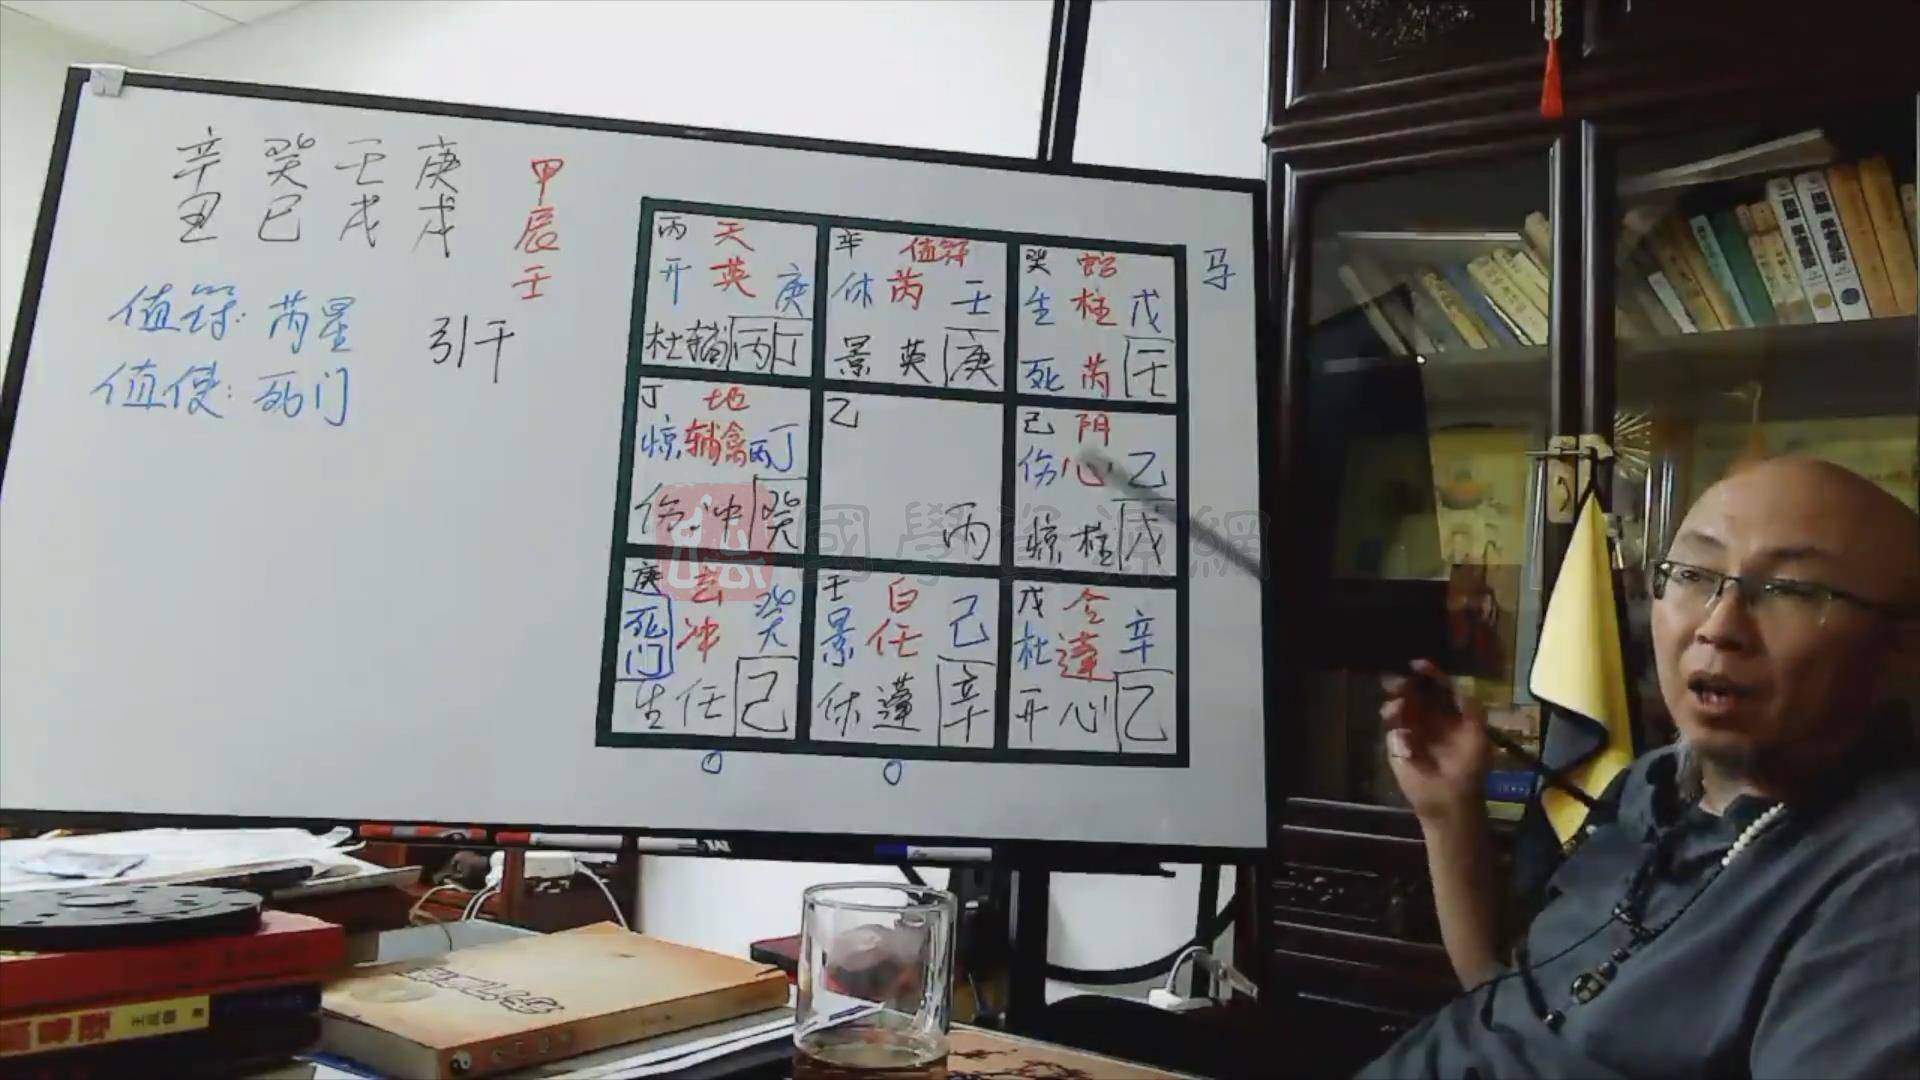 辛 癸 壬 庚
丑 巳 戌 戌
甲
辰
壬
值符：芮星
值使：死门
引干
丙 天
开 英 庚
杜 辅 丙 丁
辛 值符
休 芮 壬
景 英 庚
癸 蛇
生 柱 戊
死 芮 壬
马
丁 地
惊 辅 禽 丙 丁
伤 冲 癸
乙
丙
己 阴
伤 心 乙
惊 柱 戊
庚 玄
死门 冲 癸
生 任 己
壬 白
景 任 己
休 蓬 辛
戊 合
杜 蓬 辛
开 心 乙
○ ○
國學資源網